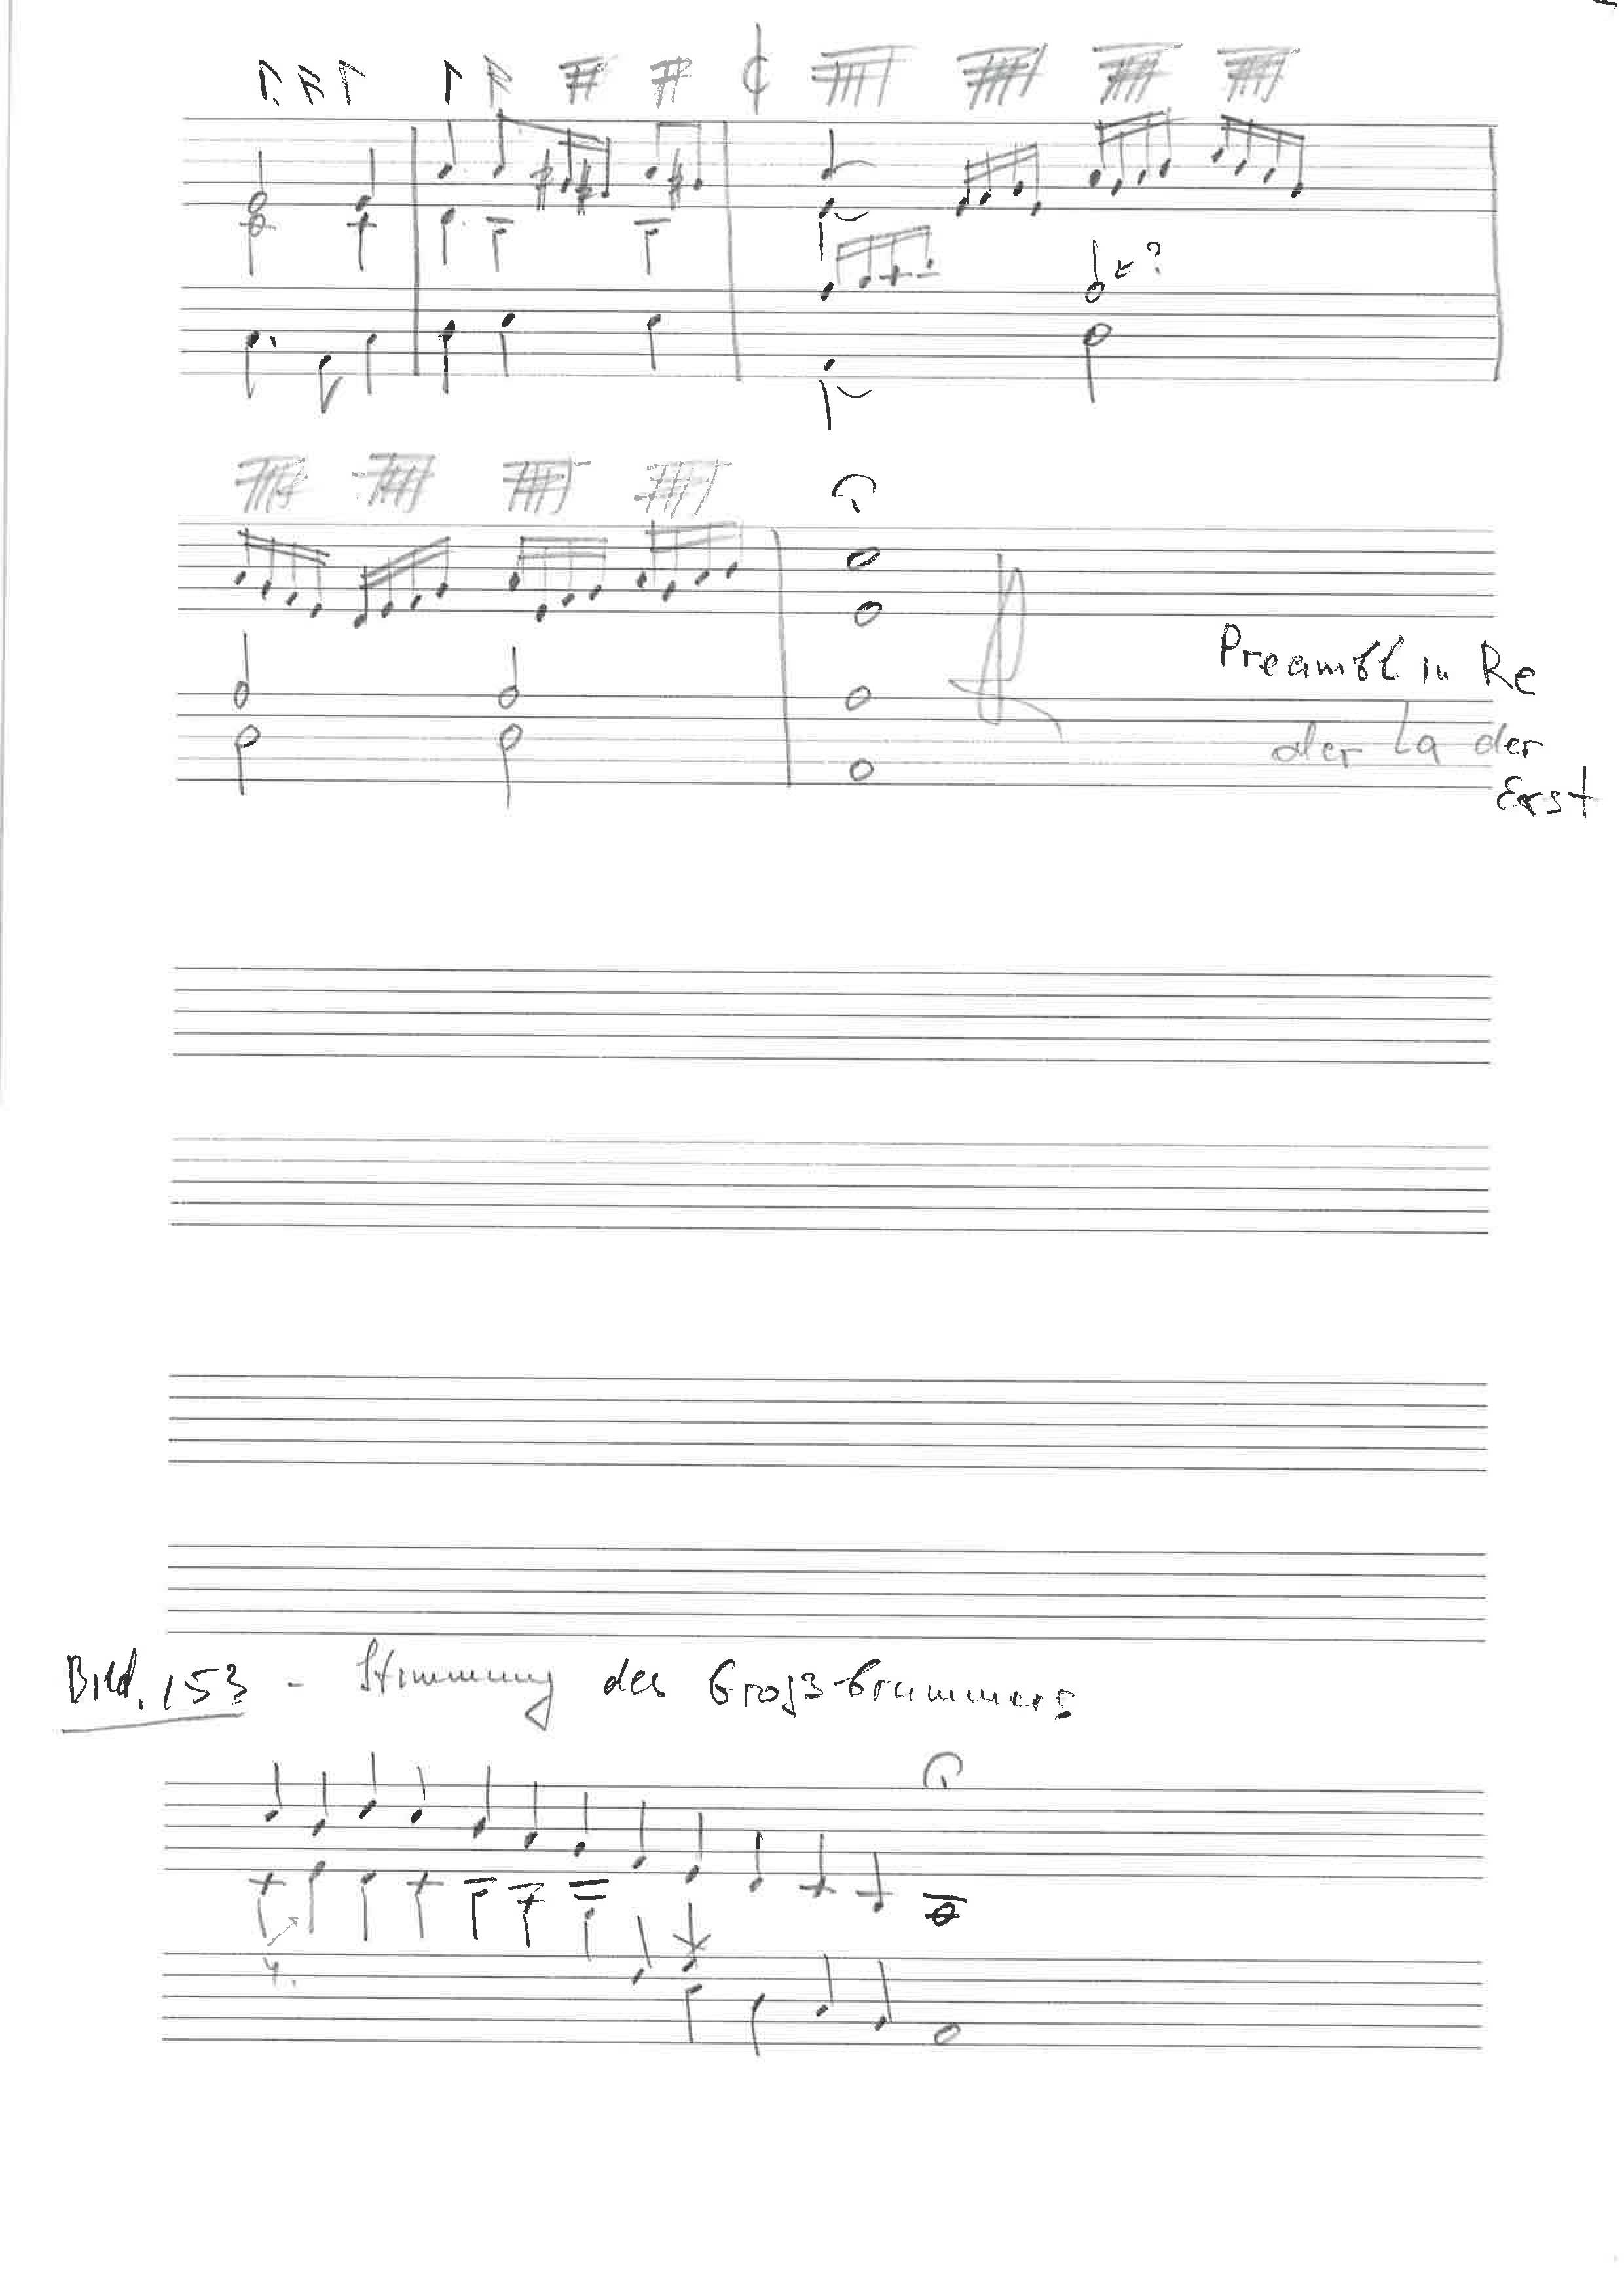 ?
Preambl in Re
der La der
Erst
Bild. 153 - Stimmung des Großbrummers
4.